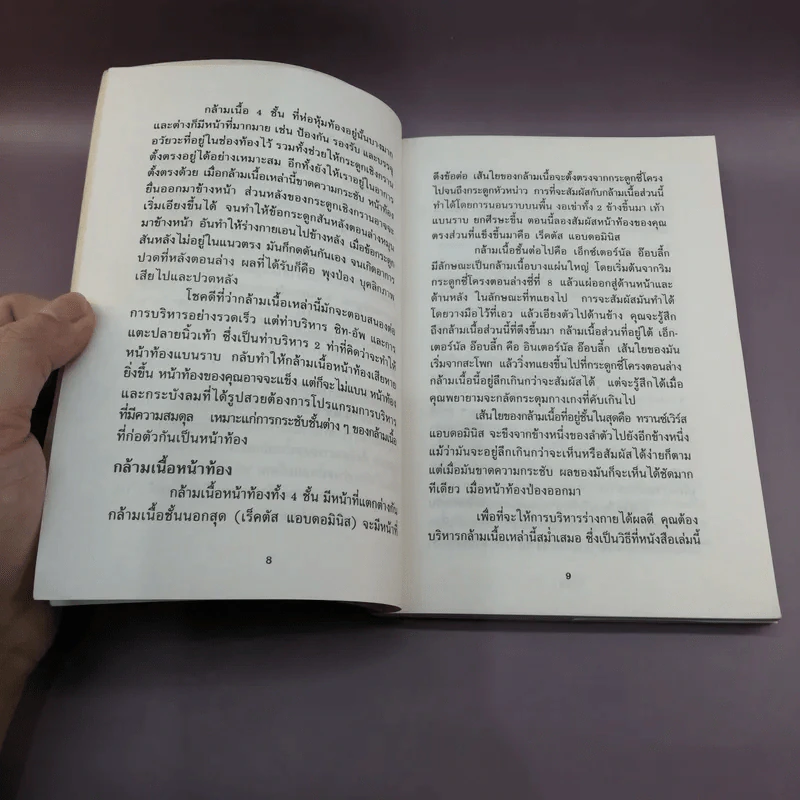 กล้ามเนื้อ 4 ชั้น ที่ห่อหุ้มท้องอยู่นั้นบางมาก
และต่างก็มีหน้าที่มากมาย เช่น ป้องกัน รองรับ และบรรจุ
อวัยวะที่อยู่ในช่องท้องไว้ รวมทั้งช่วยให้กระดูกเชิงกราน
ตั้งตรงอยู่ได้อย่างเหมาะสม อีกทั้งยังให้เราอยู่ในอาการ
ตั้งตรงด้วย เมื่อกล้ามเนื้อเหล่านี้ขาดความกระชับ หน้าท้อง
ยื่นออกมาข้างหน้า ส่วนหลังของกระดูกเชิงกรานอาจจะ
เริ่มเอียงขึ้นได้ จนทำให้ข้อกระดูกสันหลังตอนล่างหมุน
มาข้างหน้า อันทำให้ร่างกายเอนไปข้างหลัง เมื่อข้อกระดูก
สันหลังไม่อยู่ในแนวตรง มันก็กดดันกันเอง จนเกิดอาการ
ปวดที่หลังตอนล่าง ผลที่ได้รับก็คือ พุงป่อง บุคลิกภาพ
เสียไปและปวดหลัง
โชคดีที่ว่ากล้ามเนื้อเหล่านี้มักจะตอบสนองต่อ
การบริหารอย่างรวดเร็ว แต่ท่าบริหาร ซิท-อัพ และการ
แตะปลายนิ้วเท้า ซึ่งเป็นท่าบริหาร 2 ท่าที่คิดว่าจะทำให้
หน้าท้องแบนราบ กลับทำให้กล้ามเนื้อหน้าท้องเสียหาย
ยิ่งขึ้น หน้าท้องของคุณอาจจะแข็ง แต่ก็จะไม่แบน หน้าท้อง
และกระบังลมที่ได้รูปสวยต้องการโปรแกรมการบริหาร
ที่มีความสมดุล เหมาะแก่การกระชับชั้นต่าง ๆ ของกล้ามเนื้อ
ที่ก่อตัวกันเป็นหน้าท้อง
กล้ามเนื้อหน้าท้อง
กล้ามเนื้อหน้าท้องทั้ง 4 ชั้น มีหน้าที่แตกต่างกัน
กล้ามเนื้อชั้นนอกสุด (เร็คตัส แอบดอมินิส) จะมีหน้าที่
8
ดึงข้อต่อ เส้นใยของกล้ามเนื้อจะตั้งตรงจากกระดูกซี่โครง
ไปจนถึงกระดูกหัวหน่าว การที่จะสัมผัสกับกล้ามเนื้อส่วนนี้
ทำได้โดยการนอนราบบนพื้น งอเข่าทั้ง 2 ข้างขึ้นมา เท้า
แบนราบ ยกศีรษะขึ้น ตอนนี้ลองสัมผัสหน้าท้องของคุณ
ตรงส่วนที่แข็งขึ้นมาคือ เร็คตัส แอบดอมินิส
กล้ามเนื้อชั้นต่อไปคือ เอ็กซ์เตอร์นัล อ๊อบลิ้ก
มีลักษณะเป็นกล้ามเนื้อบางแผ่นใหญ่ โดยเริ่มต้นจากริม
กระดูกซี่โครงตอนล่างซี่ที่ 8 แล้วแผ่ออกสู่ด้านหน้าและ
ด้านหลัง ในลักษณะที่ทแยงไป การจะสัมผัสมันทำได้
โดยวางมือไว้ที่เอว แล้วเอียงตัวไปด้านข้าง คุณจะรู้สึก
ถึงกล้ามเนื้อส่วนนี้ที่ตึงขึ้นมา กล้ามเนื้อส่วนที่อยู่ใต้ เอ็ก-
เตอร์นัล อ๊อบลิ้ก คือ อินเตอร์นัล อ๊อบลิ้ก เส้นใยของมัน
เริ่มจากสะโพก แล้ววิ่งทแยงขึ้นไปที่กระดูกซี่โครงตอนล่าง
กล้ามเนื้อนี้อยู่ลึกเกินกว่าจะสัมผัสได้ แต่จะรู้สึกได้เมื่อ
คุณพยายามจะกลัดกระดุมกางเกงที่คับเกินไป
เส้นใยของกล้ามเนื้อที่อยู่ชั้นในสุดคือ ทรานซ์เวิร์ส
แอบดอมินิส จะขึงจากข้างหนึ่งของลำตัวไปยังอีกข้างหนึ่ง
แม้ว่ามันจะอยู่ลึกกว่าจะเห็นหรือสัมผัสได้ง่ายก็ตาม
แต่เมื่อมันขาดความกระชับ ผลของมันก็จะเห็นได้ชัดมาก
ทีเดียว เมื่อหน้าท้องป่องออกมา
เพื่อที่จะให้การบริหารร่างกายได้ผลดี คุณต้อง
บริหารกล้ามเนื้อเหล่านี้สม่ำเสมอ ซึ่งเป็นวิธีที่หนังสือเล่มนี้
9